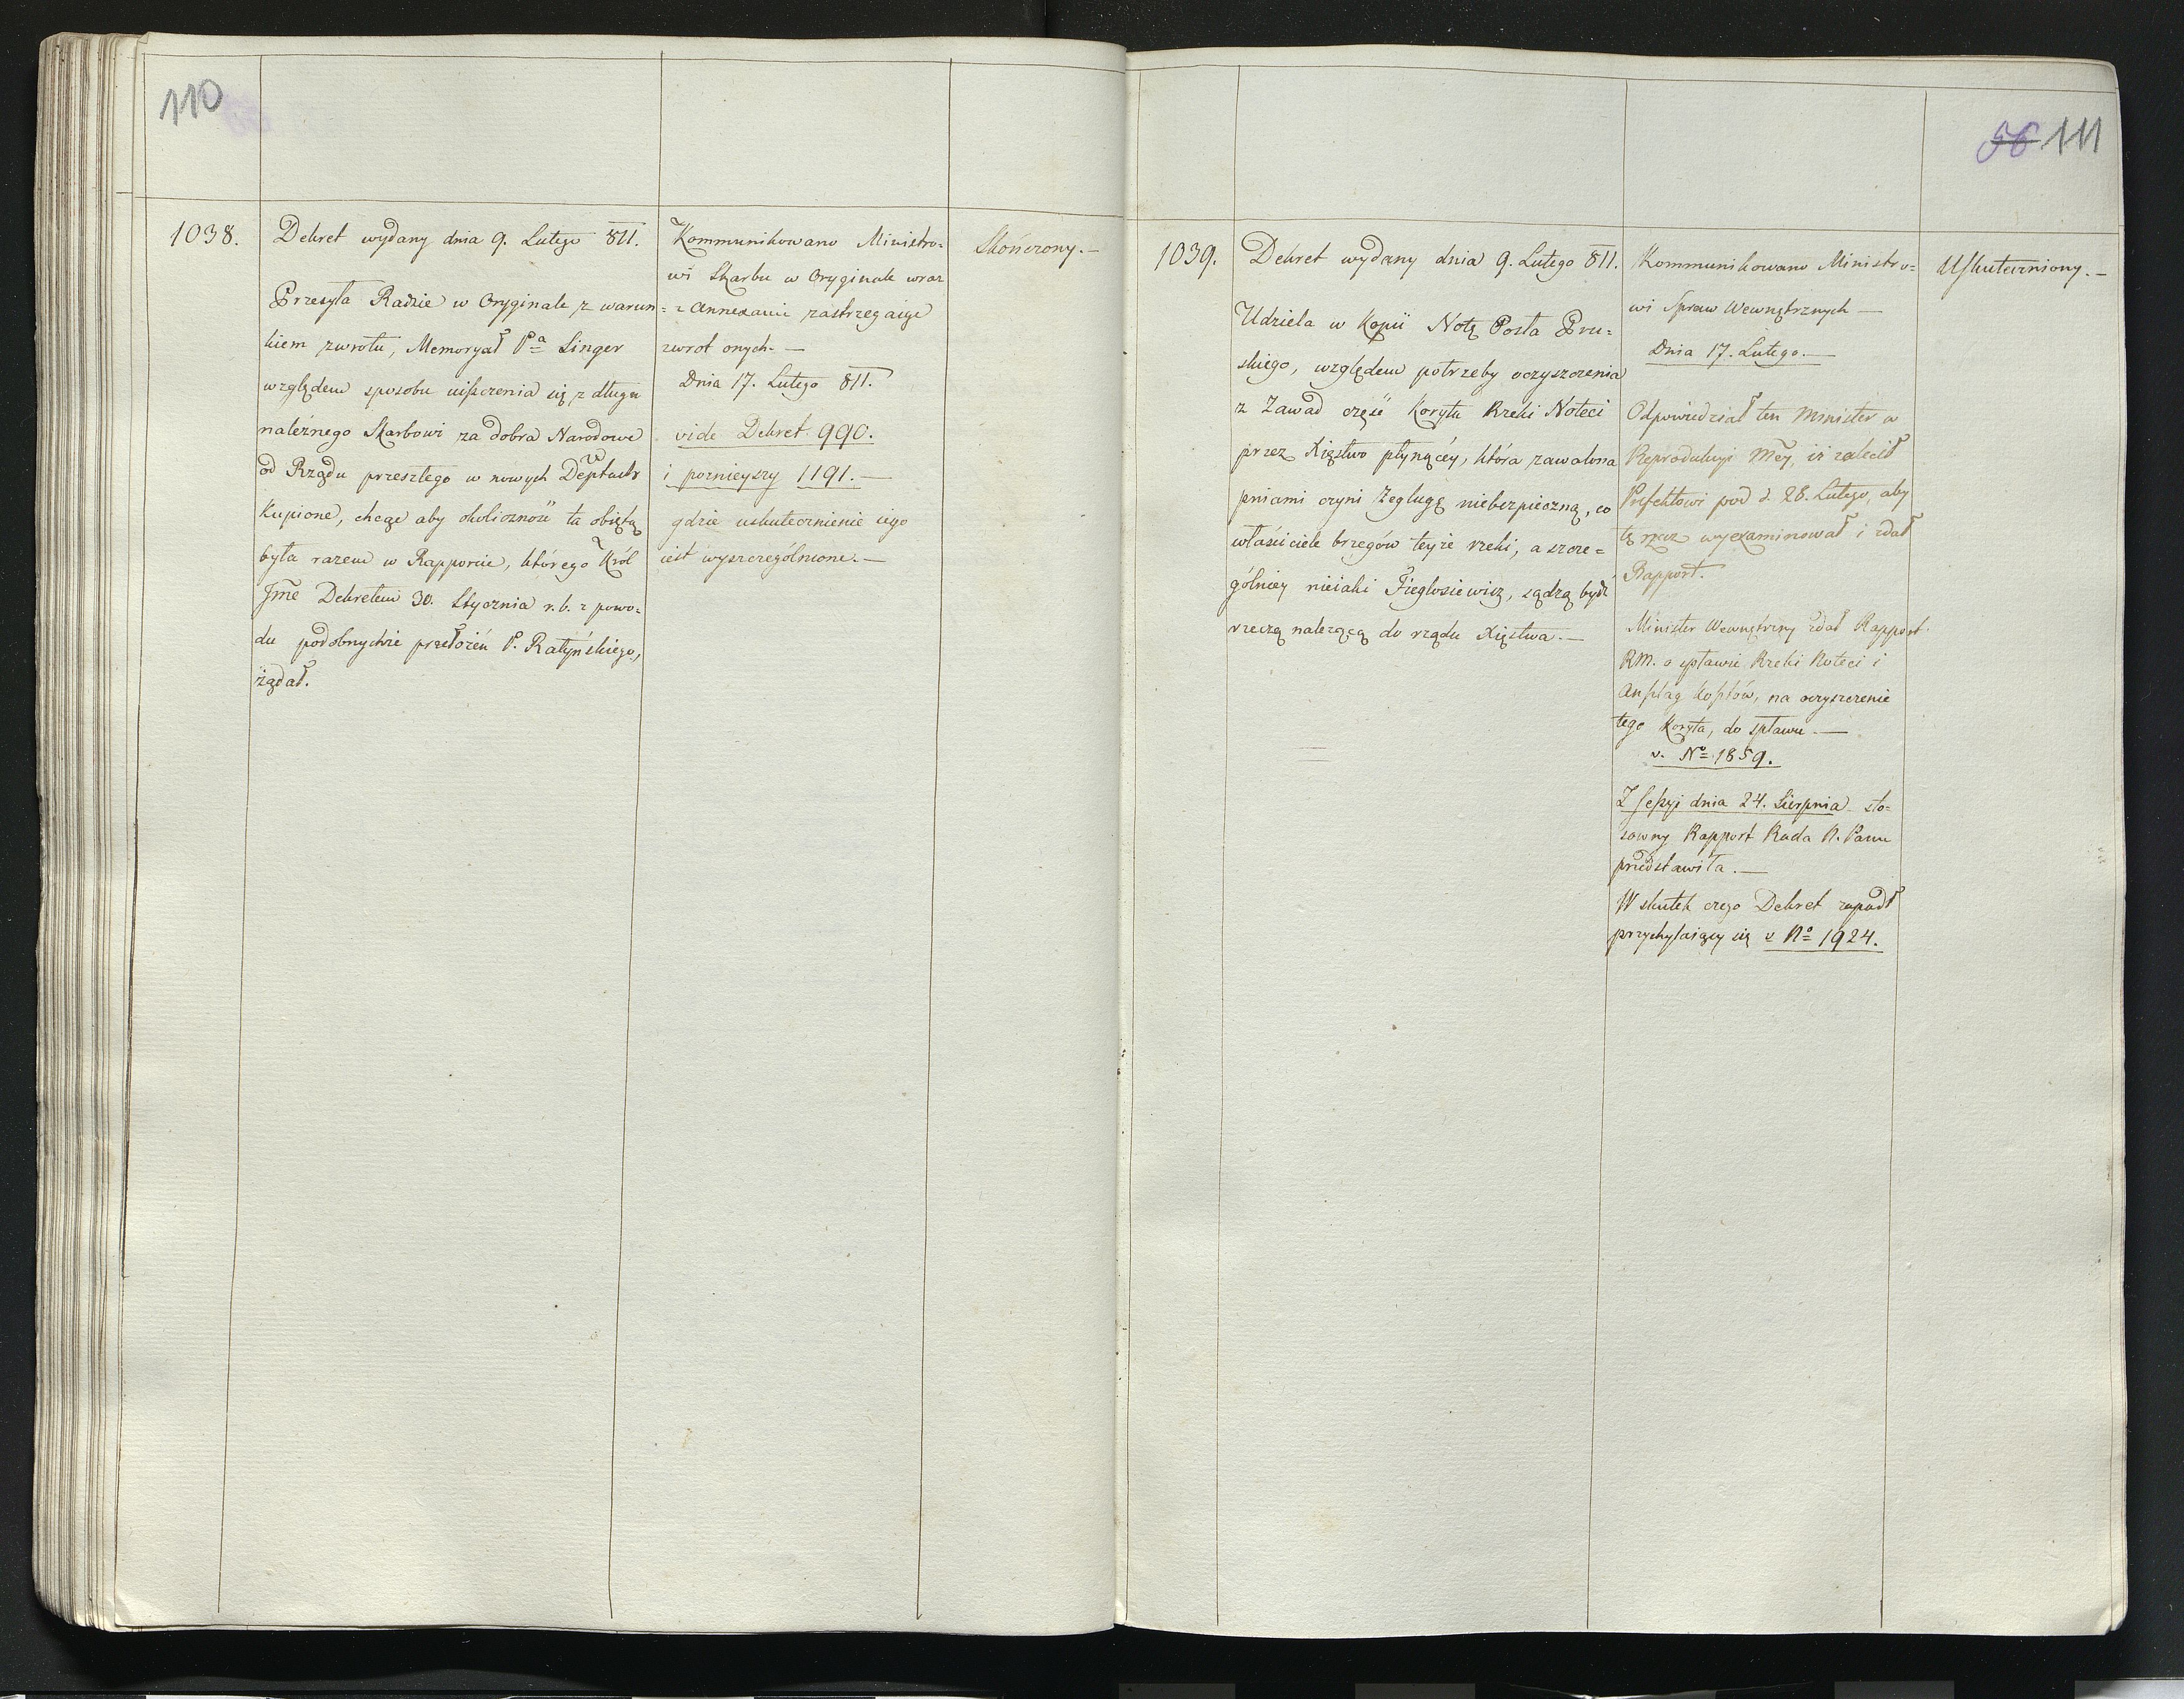 110
1038.
Dekret wydany dnia 9. Lutego 811.
Przesyła Radzie w Oryginale z warun=
kiem zwrotu, Memoryał Pa Singer
względem sposobu uiszczenia się z długu
należnego Skarbowi za dobra Narodowe
od Rządu przeszłego w nowych Depttach
Kupione, chcąc aby okoliczność ta obiętą
była razem w Rapporcie, którego Król
Jmć Dekretem 30. Stycznia r.b. z powo=
du podobnychże przełożeń P. Ratyńskiego,
żądał.
Kommunikowano Ministro=
wi Skarbu w Oryginale wraz
z Annexami zastrzegaiąc
zwrot onych. —
Dnia 17. Lutego 811.
vide Dekret 990.
i poznieyszy 1191. —
gdzie uskutecznienie iego
iest wyszczególnione. —
Skończony. —
56 111
1039.
Dekret wydany dnia 9. Lutego 811.
Udziela w Kopii Notę Posła Pru=
skiego, względem potrzeby oczyszczenia
z Zawad część Koryta Rzeki Noteci
przez Xięstwo płynącéy, która zawalona
pniami czyni Żeglugę niebezpieczną, co
właściciele brzegów teyże rzeki, a szcze=
gólniey nieiaki Fieglosiewicz, sądzą bydź
rzeczą należącą do rządu Xięstwa. —
Kommunikowano Ministro=
wi Spraw Wewnętrznych —
Dnia 17. Lutego. —
Odpowiedział ten Minister w
Reprodukcyi Mey, iż zalecił
Prefektowi pod d. 28. Lutego, aby
tę rzecz wyexaminował i zdał
Rapport.
Minister Wewnętrzny zdał Rapport
RM. o spławie Rzeki Noteci i
Anszlag kosztów, na oczyszczenie
tego Koryta, do spławu. —
v. No 1859.
Z Sessyi dnia 24. Sierpnia sto=
sowny Rapport Rada N. Panu
przedstawiła. —
W skutek czego Dekret zapadł
przychylaiący się v No 1924.
Uskuteczniony. —